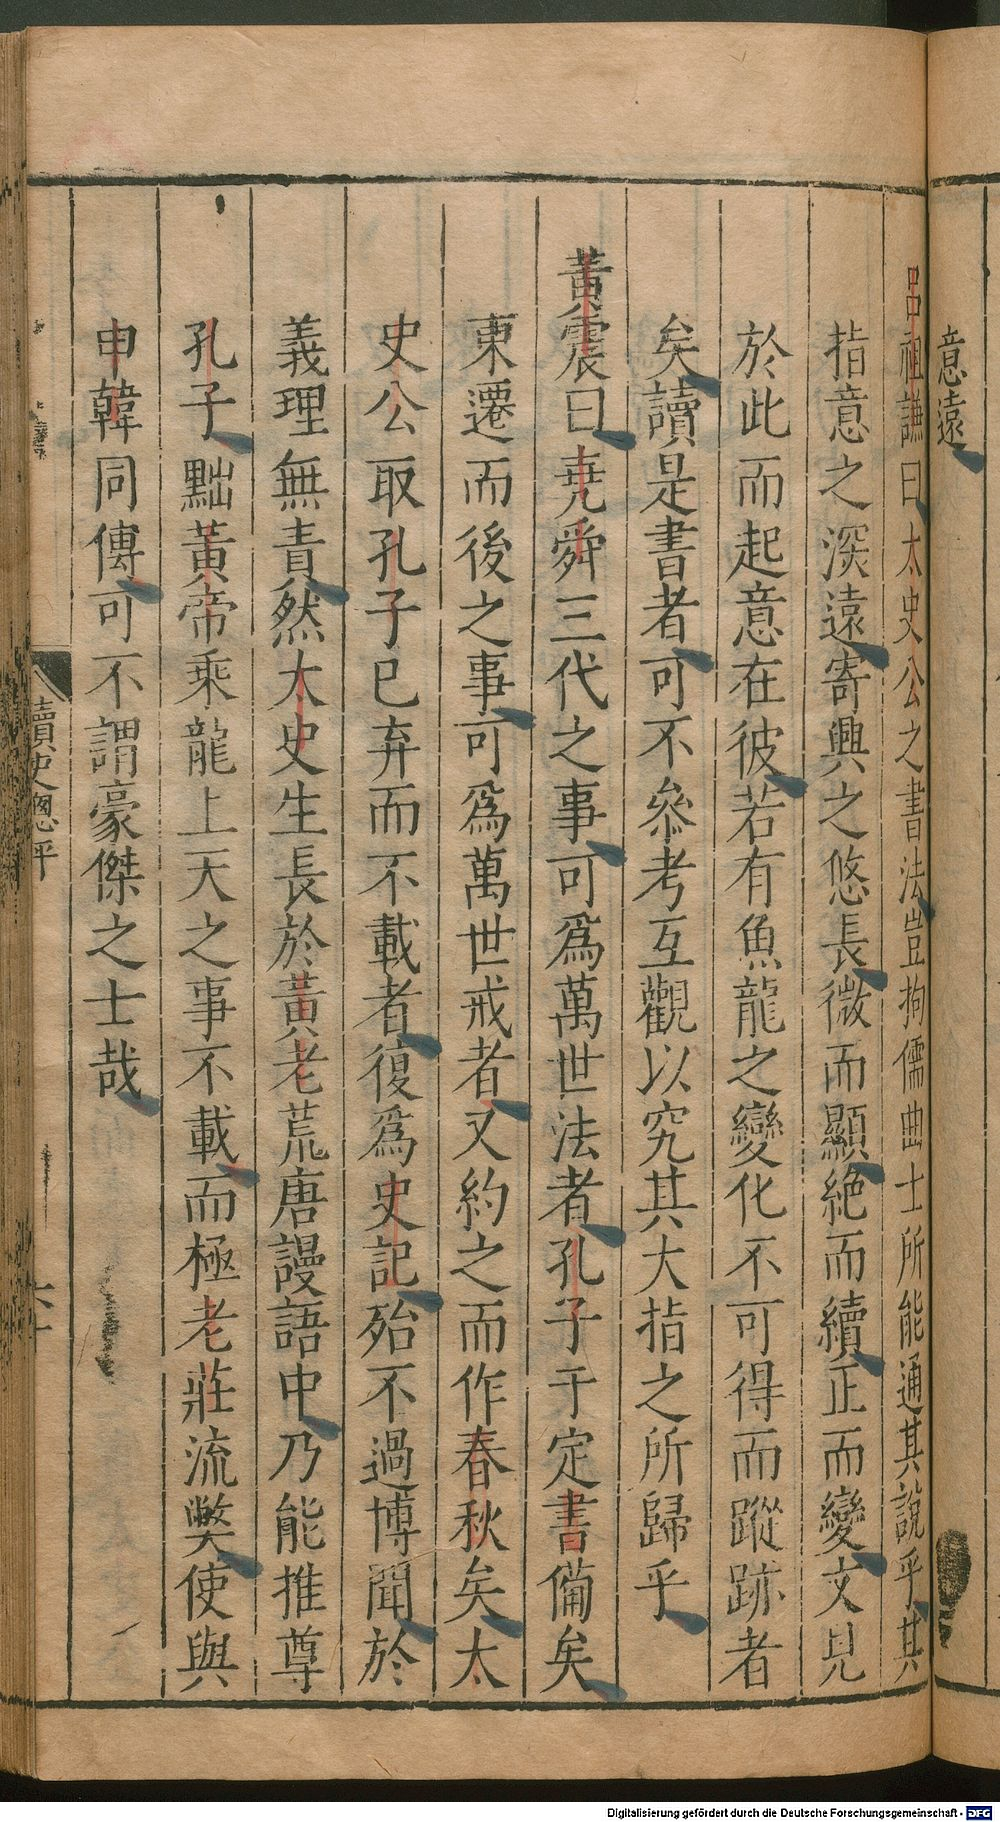 意遠
呂祖謙曰太史公之書法豈拘儒曲士所能通其說乎其
指意之深遠寄興之悠長微而顯絶而續正而變文見
於此而起意在彼若有魚龍之變化不可得而蹤跡者
矣讀是書者可不叅考互觀以究其大指之所歸乎
黃震曰堯舜三代之事可爲萬世法者孔子于定書備矣
東遷而後之事可爲萬世戒者又約之而作春秋矣太
史公取孔子已弃而不載者復爲史記殆不過博聞於
義理無責然太史生長於黃老荒唐謾語中乃能推尊
孔子黜黃帝乘龍上天之事不載而極老莊流獘使與
申韓同傳可不謂豪傑之士哉
讀史緫評
六
Digitalisierung gefördert durch die Deutsche Forschungsgemeinschaft - DFG